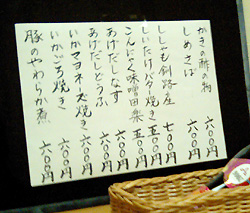 かきの酢の物 六〇〇円
しめさば 六〇〇円
ししゃも釧路産 七〇〇円
しいたけバター焼き 五〇〇円
こんにゃく味噌田楽 五〇〇円
あげだしなす 六〇〇円
あげだしどうふ 六〇〇円
いかマヨネーズ焼き 六〇〇円
いかごろ焼き 六〇〇円
豚のやわらか煮 六〇〇円